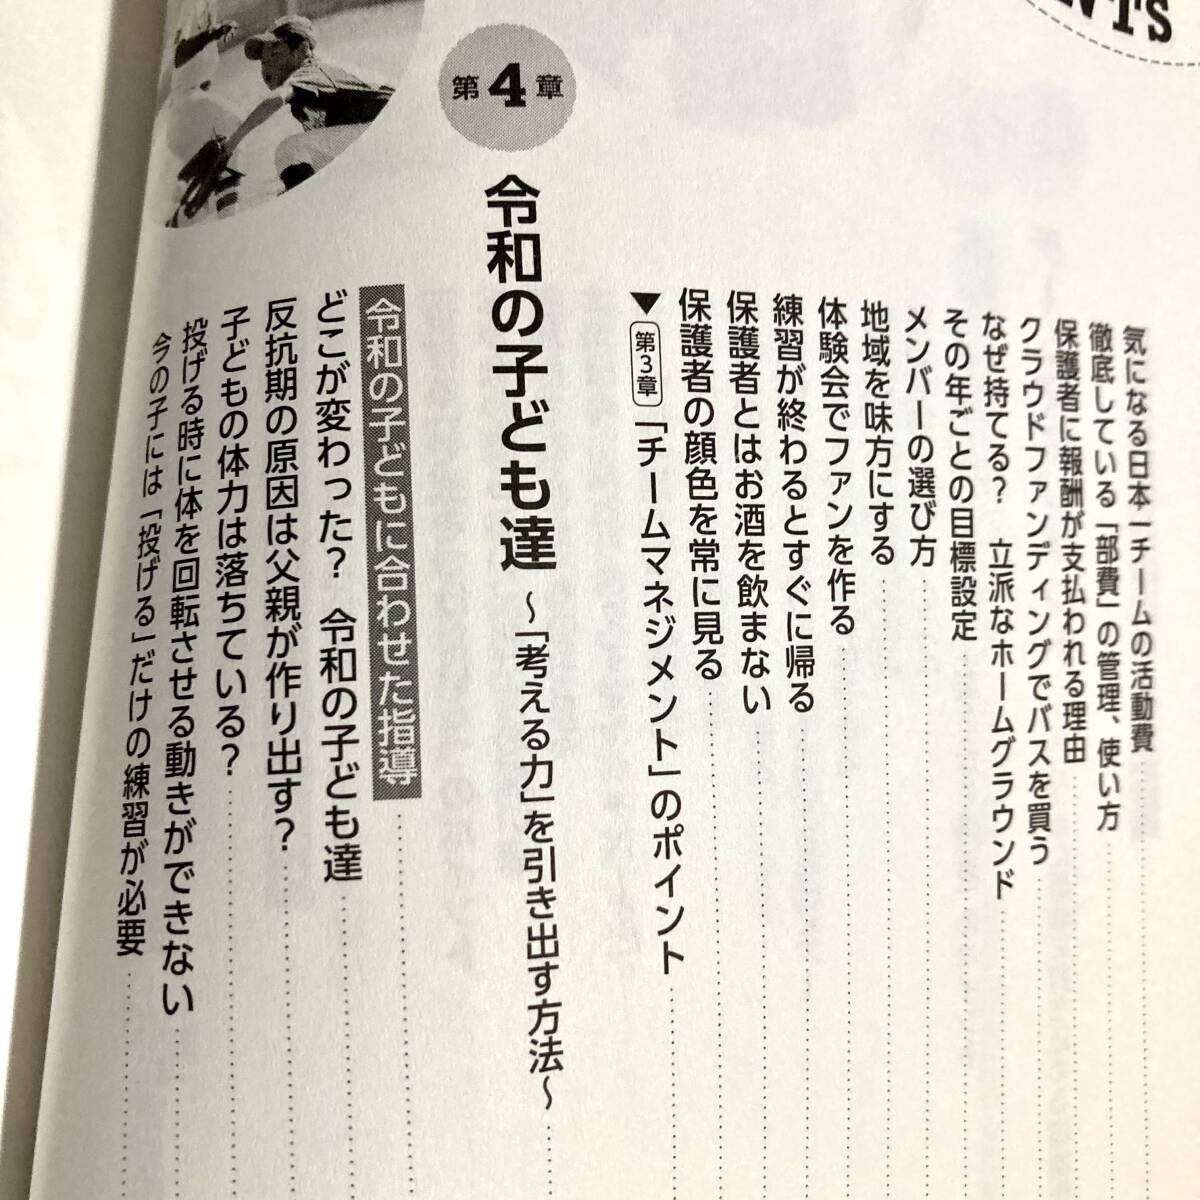 気になる日本一チームの活動費
徹底している「部費」の管理、使い方
保護者に報酬が支払われる理由
クラウドファンディングでバスを買う
なぜ持てる？　立派なホームグラウンド
その年ごとの目標設定
メンバーの選び方
地域を味方にする
体験会でファンを作る
練習が終わるとすぐに帰る
保護者とはお酒を飲まない
保護者の顔色を常に見る
▼第3章「チームマネジメント」のポイント
第4章
令和の子ども達 〜「考える力」を引き出す方法〜
令和の子どもに合わせた指導
どこが変わった？　令和の子ども達
反抗期の原因は父親が作り出す？
子どもの体力は落ちている？
投げる時に体を回転させる動きができない
今の子には「投げる」だけの練習が必要